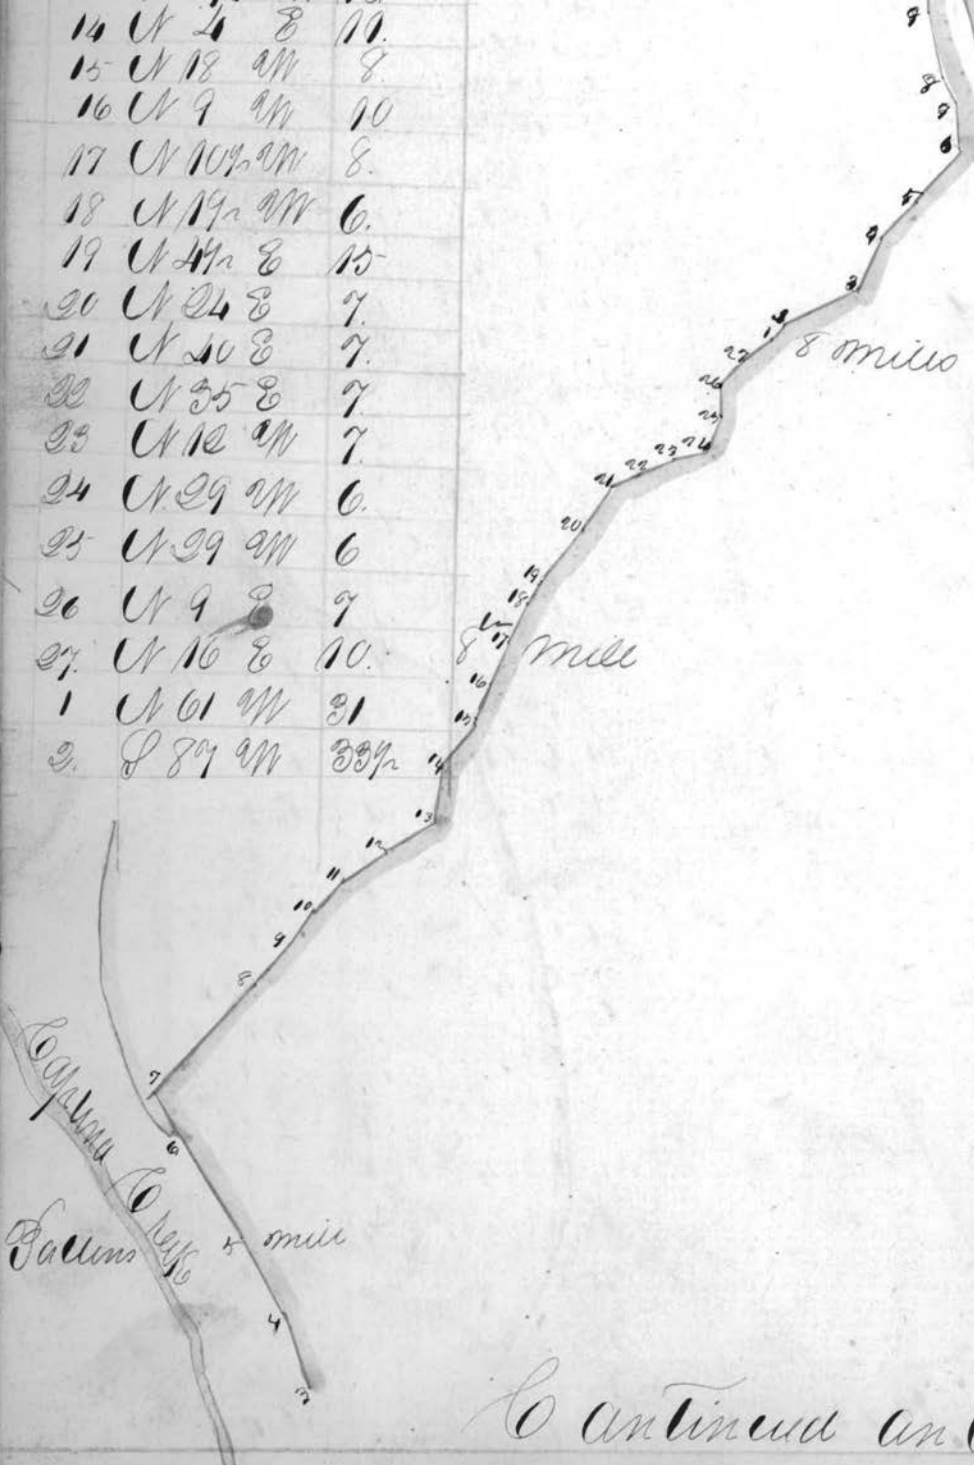 14 N 4 E 11.
15 N 18 W 8.
16 N 9 W 10
17 N 10½ W 8.
18 N 19½ W 6.
19 N 4½ E 15
20 N 24 E 7.
21 N 40 E 7.
22 N 35 E 7.
23 N 12 W 7.
24 N 29 W 6.
25 N 29 W 6
26 N 9 E 7
27. N 16 E 10.
1 N 61 W 31
2. S 87 W 33½
9
8
7
6
5
4
3
2
1
8 miles
27
26
25
24
23
22
21
20
19
18
17
8 mile
16
15
14
13
12
11
10
9
8
7
6
Captina Creek
5 mile
4
3
Continued on